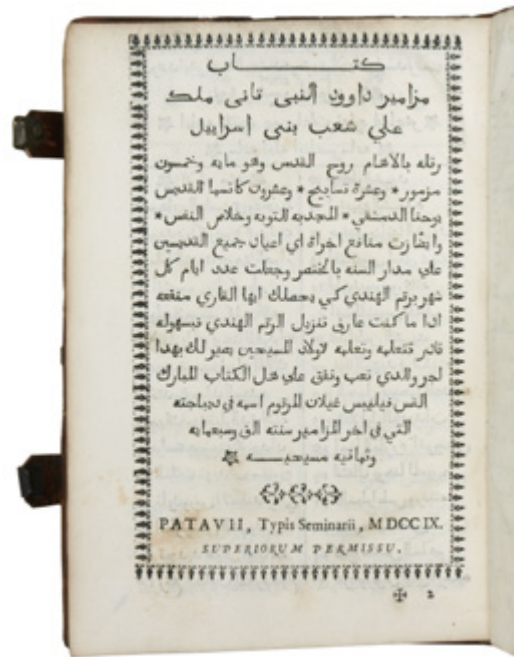 كتاب
مزامير داوود النبي تاني ملك
علي شعب بني اسراييل
رتله بالالهام روح القدس وهو مايه وخمسون
مزمور * وعشرة تسابيح * وعشرين كانسما القديس
يوحنا الدمشقي * المجديه التوبه وخلاص النفس *
وايضا زت منافع اخراة اي اعيان جميع القديسين
علي مدار السنه بالمختصر وجعلت عدد ايام كل
شهر برقم الهندي كي يحصلك ايها القاري منفعه
ادا ما كنت عارف تنزيل الرقم الهندي فبسهوله
قادر تتعلمه وتعلمه لاولاد المسيحيين يصير لك بهدا
اجر والدي تعب ونفق علي هدا الكتاب المبارك
القس فيليبس غيلان المرقوم اسمه في ديباجته
التي في اخر المزامير سنته الف وسبعمايه
وتمانيه مسيحيه
PATAVII, Typis Seminarii, MDCCIX.
SUPERIORUM PERMISSU.
✠ 2